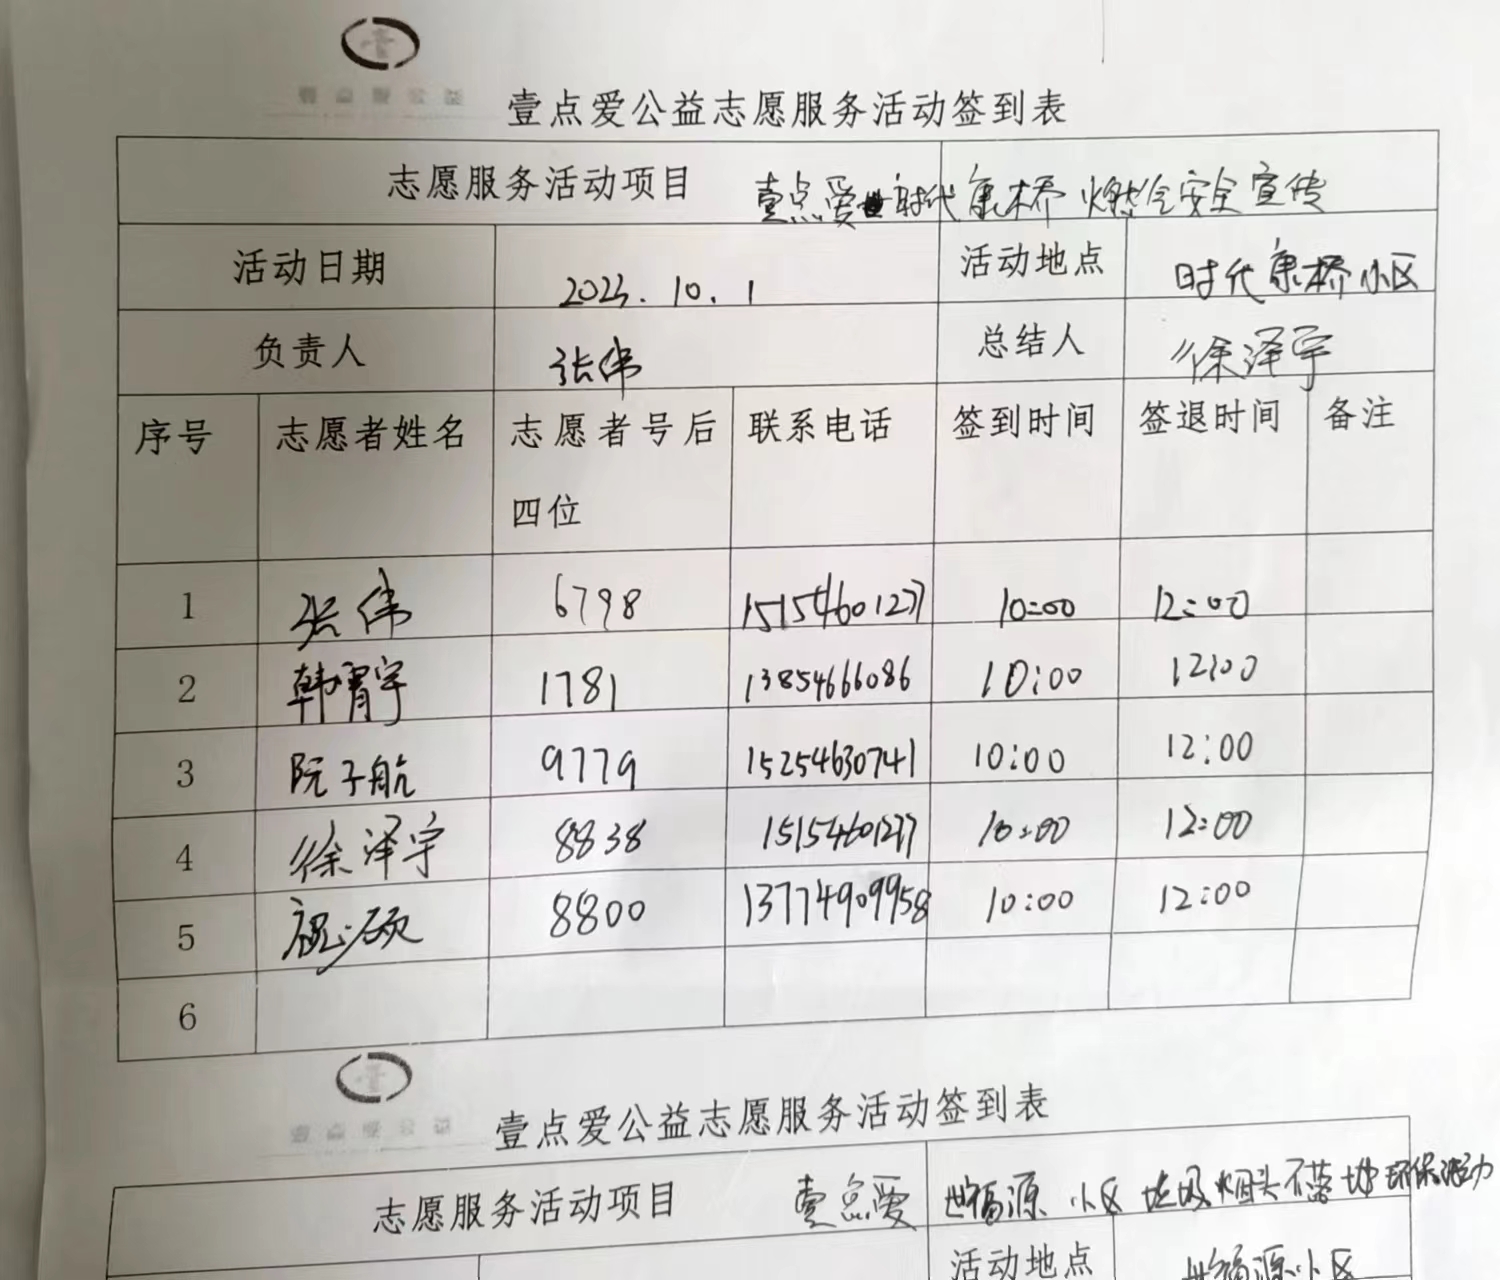 壹点爱公益志愿服务活动签到表
志愿服务活动项目 壹点爱 时代康桥 燃气安全宣传
活动日期 2023.10.1 活动地点 时代康桥小区
负责人 张伟 总结人 徐泽宇
序号 志愿者姓名 志愿者号后四位 联系电话 签到时间 签退时间 备注
1 张伟 6798 15154601277 10:00 12:00
2 韩霄宇 1781 13854666086 10:00 12:00
3 阮子航 9779 15254630741 10:00 12:00
4 徐泽宇 8838 15154601277 10:00 12:00
5 祝硕 8800 13774909958 10:00 12:00
6
壹点爱公益志愿服务活动签到表
志愿服务活动项目 壹点爱 世福源 小区 垃圾烟头不落地 环保活动
活动地点 世福源小区